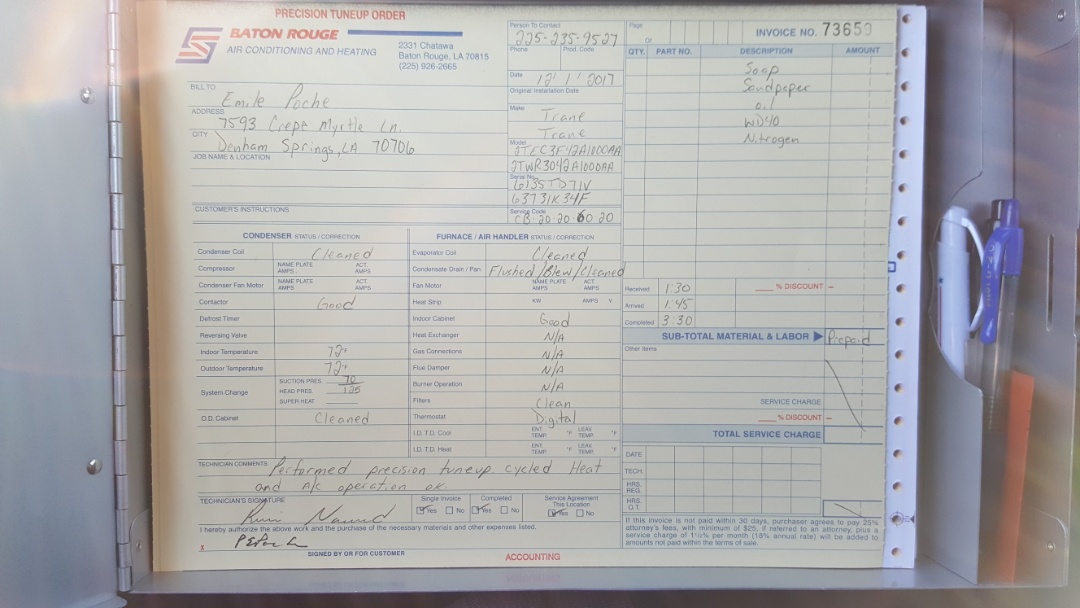 PRECISION TUNEUP ORDER
BATON ROUGE
AIR CONDITIONING AND HEATING
2331 Chatawa
Baton Rouge, LA 70815
(225) 926-2665
BILL TO
Emile Poche
ADDRESS
7593 Crepe Myrtle Ln.
CITY
Denham Springs, LA 70706
JOB NAME & LOCATION
CUSTOMER'S INSTRUCTIONS
Person To Contact
225-235-9527
Phone Prod. Code
Date 12 / 1 / 2017
Original Installation Date
Make Trane
Trane
Model
2TWR3042A1000AA
Serial No.
6135TD71V
63731K34F
Service Code
Page OF
INVOICE NO. 73659
QTY. PART NO. DESCRIPTION AMOUNT
Soap
Sandpaper
oil
WD40
Nitrogen
CONDENSER STATUS / CORRECTION
Condenser Coil Cleaned
Compressor NAME PLATE AMPS ACT. AMPS
Condenser Fan Motor NAME PLATE AMPS ACT. AMPS
Contactor Good
Defrost Timer
Reversing Valve
Indoor Temperature 72°
Outdoor Temperature 72°
System Change SUCTION PRES. 70
HEAD PRES. 125
SUPER HEAT
O.D. Cabinet Cleaned
FURNACE / AIR HANDLER STATUS / CORRECTION
Evaporator Coil Cleaned
Condensate Drain / Pan Flushed/Blew/Cleaned
Fan Motor NAME PLATE AMPS ACT. AMPS
Heat Strip KW AMPS V
Indoor Cabinet Good
Heat Exchanger N/A
Gas Connections N/A
Flue Damper N/A
Burner Operation N/A
Filters Clean
Thermostat Digital
I.D. T.D. Cool ENT. TEMP. °F LEAV. TEMP. °F
I.D. T.D. Heat ENT. TEMP. °F LEAV. TEMP. °F
Received 1:30
Arrived 1:45
Completed 3:30
% DISCOUNT –
SUB-TOTAL MATERIAL & LABOR Prepaid
Other Items
SERVICE CHARGE
% DISCOUNT –
TOTAL SERVICE CHARGE
DATE
TECH.
HRS. REG.
HRS. O.T.
TECHNICIAN COMMENTS Performed precision tuneup. cycled Heat
and A/c operation ok.
TECHNICIAN'S SIGNATURE
Single Invoice Yes No
Completed Yes No
Service Agreement This Location Yes No
I hereby authorize the above work and the purchase of the necessary materials and other expenses listed.
X
SIGNED BY OR FOR CUSTOMER
If this invoice is not paid within 30 days, purchaser agrees to pay 25%
attorney's fees, with minimum of $25, if referred to an attorney, plus a
service charge of 1½% per month (18% annual rate) will be added to
amounts not paid within the terms of sale.
ACCOUNTING